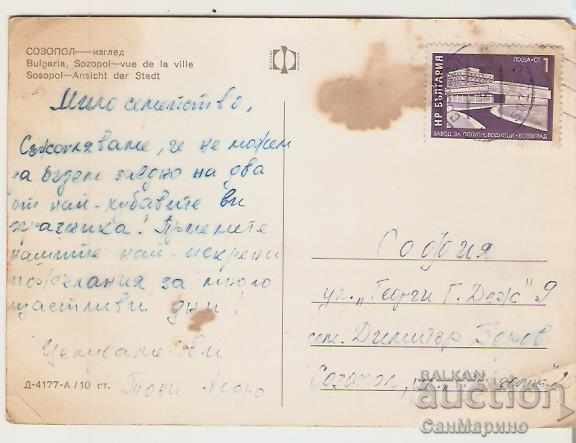 СОЗОПОЛ—изглед
Bulgaria, Sozopol—vue de la ville
Sosopol—Ansicht der Stadt
Мило семейство,
Съжаляваме, че не можем
да бъдем заедно на два
от най-хубавите ви
празника! Приемете
нашите най-искрени
пожелания за много
щастливи дни!
Целуваме ви
Д-4177-А/10 ст.
ПОЩА·СТ 1
НР БЪЛГАРИЯ
ЗАВОД ЗА ПОЛУПРОВОДНИЦИ-БОТЕВГРАД
София
ул. „Георги Г. Деж" 9
сем. Димитър Попов
Созопол,
BALKAN
auction
СанМарино